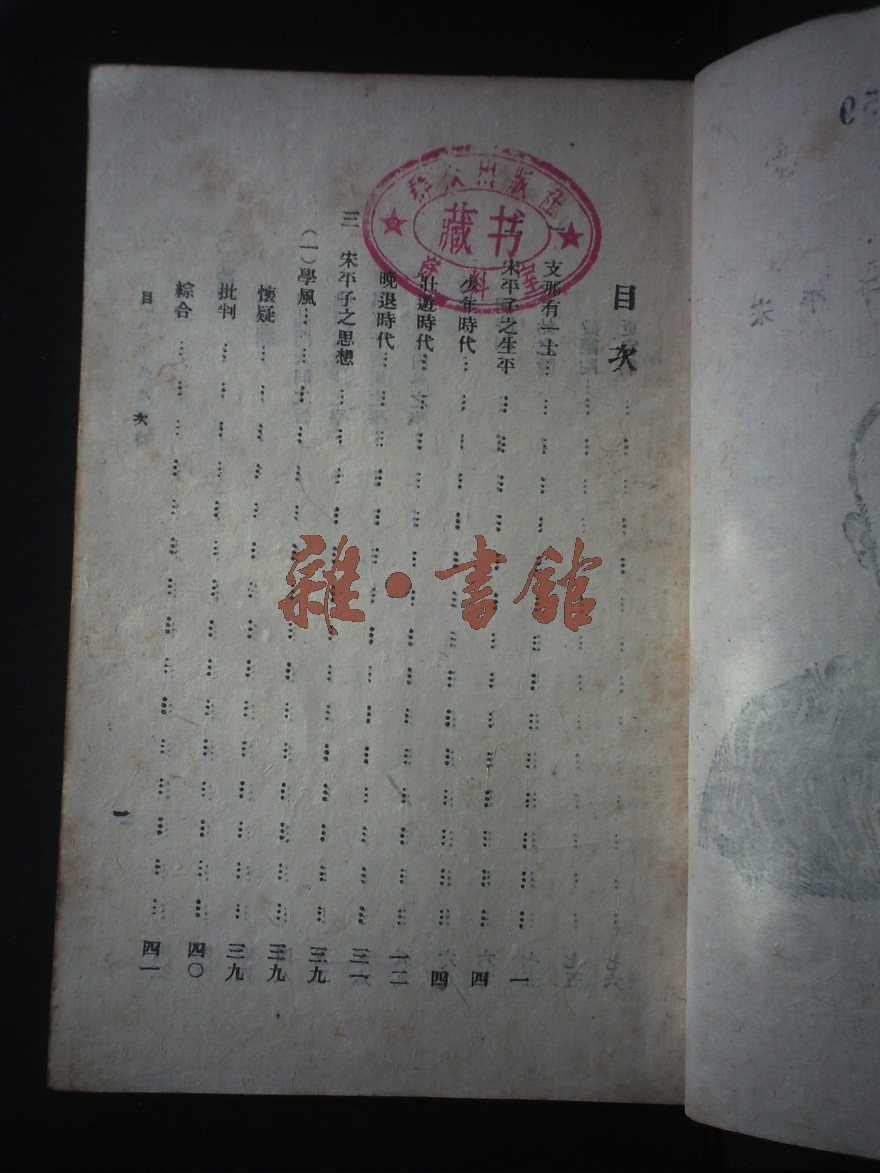 目次
一 支那有一士…………一
二 宋平子之生平…………四
少年時代…………四
壯遊時代…………一二
晚退時代…………三一
三 宋平子之思想…………三九
(一)學風…………三九
懷疑…………三九
批判…………四〇
綜合…………四一
目次
一
群众出版社
藏书
资料室
雜·書館